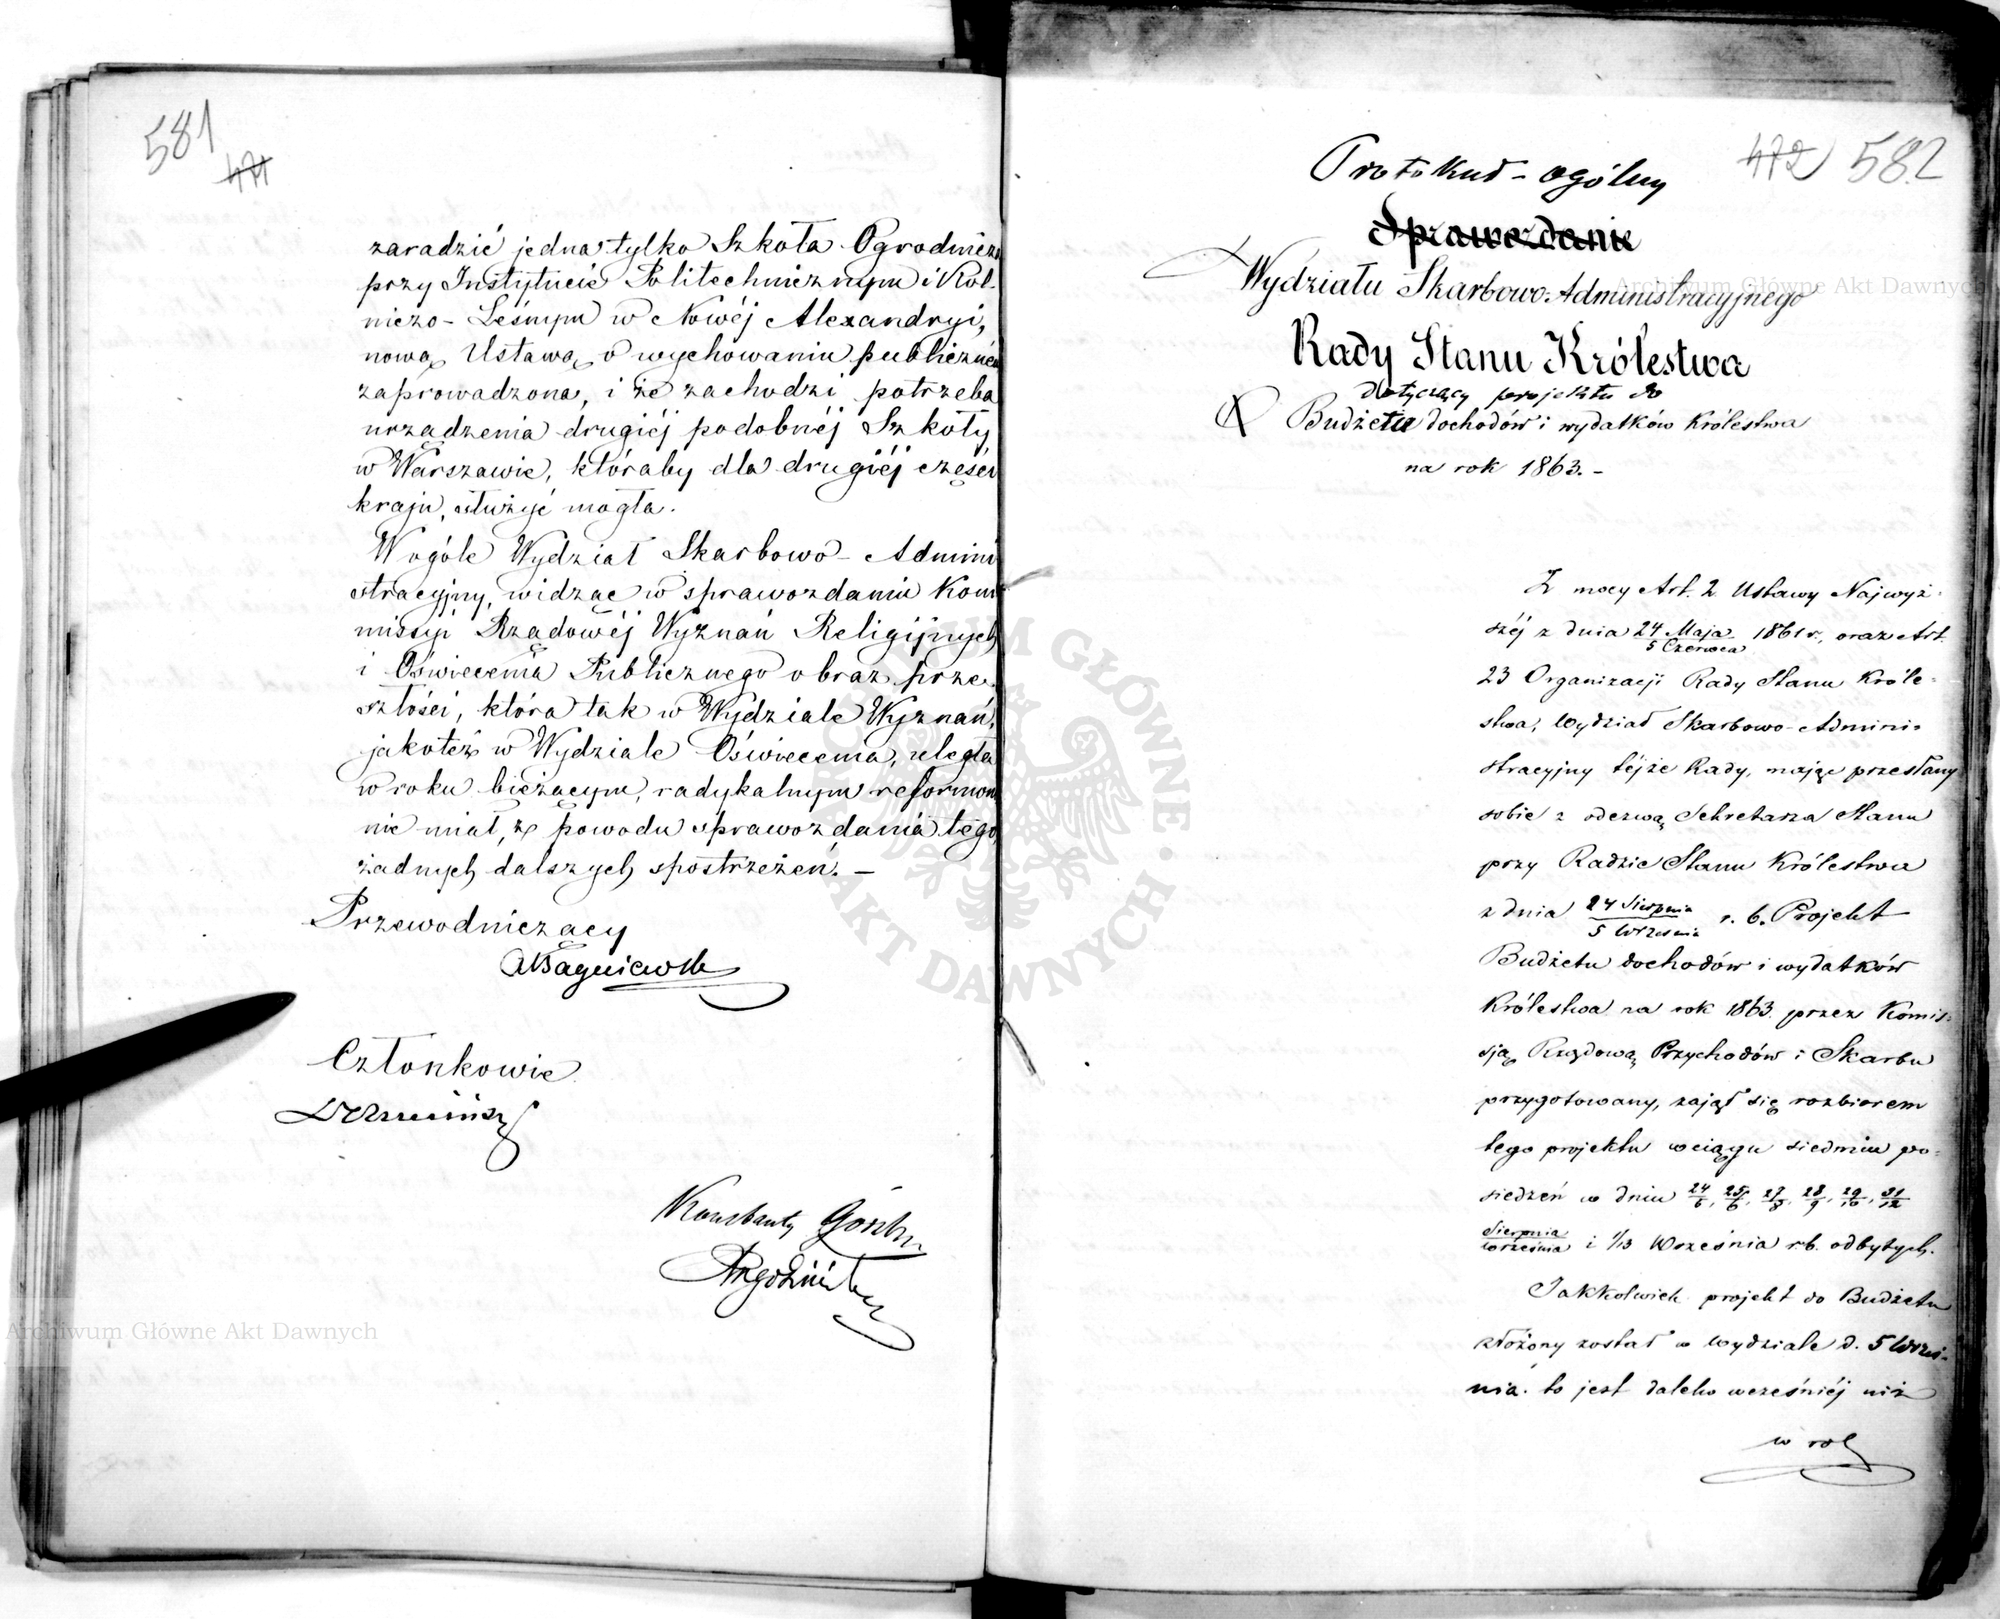 581
471
zaradzić jedna tylko Szkoła Ogrodnicza
przy Instytucie Politechnicznym i Rol-
niczo-Leśnym w Nowéj Alexandryi,
nową Ustawą o wychowaniu publiczném
zaprowadzona, i że zachodzi potrzeba
urządzenia drugiéj podobnéj Szkoły
w Warszawie, któraby dla drugiéj części
kraju, służyć mogła.
Wogóle Wydział Skarbowo-Admini
stracyjny, widząc w sprawozdaniu Kom
missyi Rządowéj Wyznań Religijnych
i Oświecenia Publicznego obraz prze-
szłości, która tak w Wydziale Wyznań,
jakoteż w Wydziale Oświecenia, uległa
w roku bieżącym, radykalnym reformom,
nie miał, z powodu sprawozdania tego,
żadnych dalszych spostrzeżeń. —
Przewodniczący
Członkowie
Konstanty
472 582
Protokuł - ogólny
Sprawozdanie
Wydziału Skarbowo-Administracyjnego
Rady Stanu Królestwa
dotyczący projektu do
Budżetu dochodów i wydatków Królestwa
na rok 1863. -
Z mocy Art. 2 Ustawy Najwyż-
széj z dnia 24 Maja / 5 Czerwca 1861 r., oraz Art.
23 Organizacji Rady Stanu Króle-
stwa, Wydział Skarbowo-Admini-
stracyjny téjże Rady, mając przesłany
sobie z odezwą Sekretarza Stanu
przy Radzie Stanu Królestwa
z dnia 24 Sierpnia / 5 Września r. b. Projekt
Budżetu dochodów i wydatków
Królestwa na rok 1863 przez Komis-
sją Rządową Przychodów i Skarbu
przygotowany, zajął się rozbiorem
tego projektu w ciągu siedmiu po-
siedzeń w dniu 24/5, 25/6, 27/8, 28/9, 29/10, 31/12
Sierpnia / Września i 1/13 Września r.b. odbytych.
Jakkolwiek projekt do Budżetu
złożony został w Wydziale d. 5 Wrześ-
nia. to jest daleko wcześniéj niż
w rok